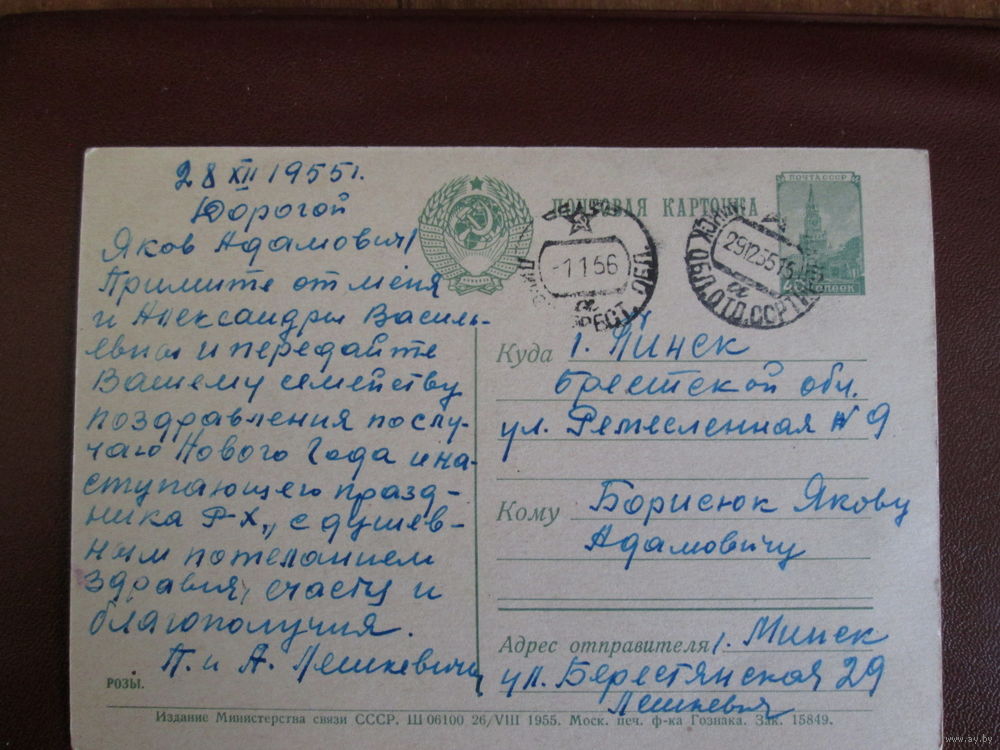 28 XII 1955 г.
Дорогой
Яков Адамович!
Примите от меня
и Александры Василь-
евны и передайте
Вашему семейству
поздравления по слу-
чаю Нового Года и на-
ступающего празд-
ника Р-Х., с душев-
ным пожеланием
здравия, счастья и
благополучия.
П. и А. Лешкевичи
РОЗЫ.
ПОЧТОВАЯ КАРТОЧКА
ПОЧТА СССР
40 КОПЕЕК
-1 1 56
БРЕСТ. ОБЛ.
29 12 55 15
МИНСК ОБЛ. ОТД. ССР
Куда г. Пинск
Брестской обл.
ул. Ремесленная № 9
Кому Борисюк Якову
Адамовичу
Адрес отправителя г. Минск
ул. Берестянская 29
Лешкевич
Издание Министерства связи СССР. Ш 06100 26/VIII 1955. Моск. печ. ф-ка Гознака. Зак. 15849.
www.ay.by